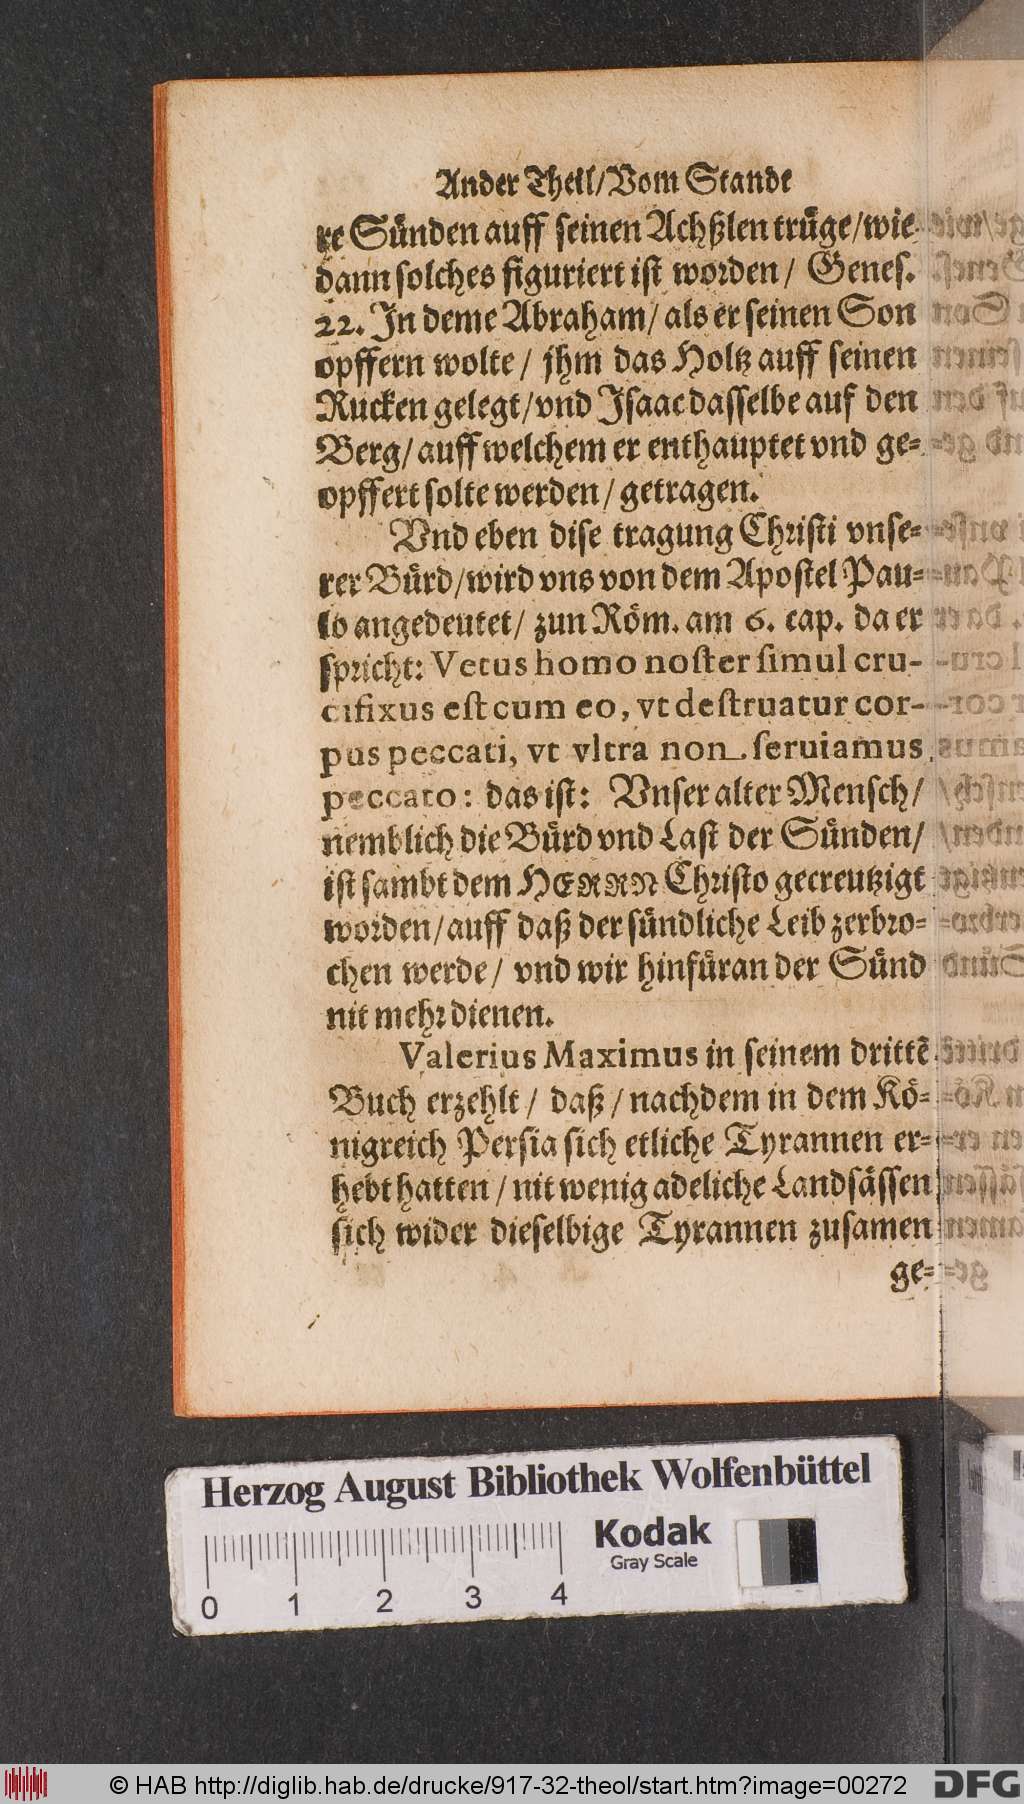 Ander Theil/Vom Stande
re Sünden auff seinen Achßlen trüge/wie
dann solches figuriert ist worden/ Genes.
22. In deme Abraham/ als er seinen Son
opffern wolte/ jhm das Holtz auff seinen
Rucken gelegt/vnd Isaac dasselbe auf den
Berg/ auff welchem er enthauptet vnd ge-
opffert solte werden/ getragen.
Vnd eben dise tragung Christi vnse-
rer Bürd/wird vns von dem Apostel Pau-
lo angedeutet/ zun Röm. am 6. cap. da er
spricht: Vetus homo noster simul cru-
cifixus est cum eo, vt destruatur cor-
pus peccati, vt vltra non seruiamus
peccato: das ist: Vnser alter Mensch/
nemblich die Bürd vnd Last der Sünden/
ist sambt dem HERRN Christo gecreutzigt
worden/auff daß der sündliche Leib zerbro-
chen werde/ vnd wir hinfüran der Sünd
nit mehr dienen.
Valerius Maximus in seinem drittē
Buch erzehlt/ daß/ nachdem in dem Kö-
nigreich Persia sich etliche Tyrannen er-
hebt hatten/ nit wenig adeliche Landsässen
sich wider dieselbige Tyrannen zusamen
ge-
Herzog August Bibliothek Wolfenbüttel
Kodak
Gray Scale
0 1 2 3 4
© HAB http://diglib.hab.de/drucke/917-32-theol/start.htm?image=00272
DFG